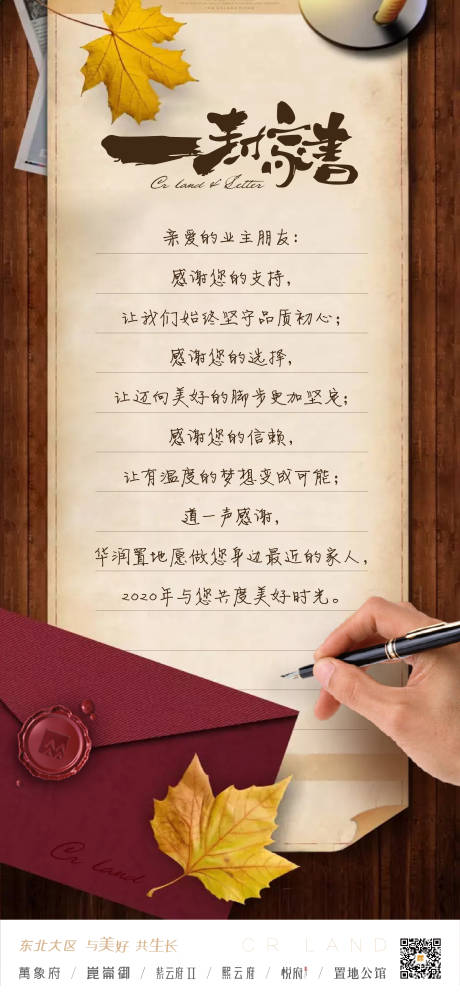 一封家书
Cr land & Letter
亲爱的业主朋友：
感谢您的支持，
让我们始终坚守品质初心；
感谢您的选择，
让迈向美好的脚步更加坚定；
感谢您的信赖，
让有温度的梦想变成可能；
道一声感谢，
华润置地愿做您身边最近的家人，
2020年与您共度美好时光。
Cr land
东北大区 与美好 共生长
CR LAND
萬象府 / 崑崙御 / 紫云府II / 熙云府 / 悦府 / 置地公馆